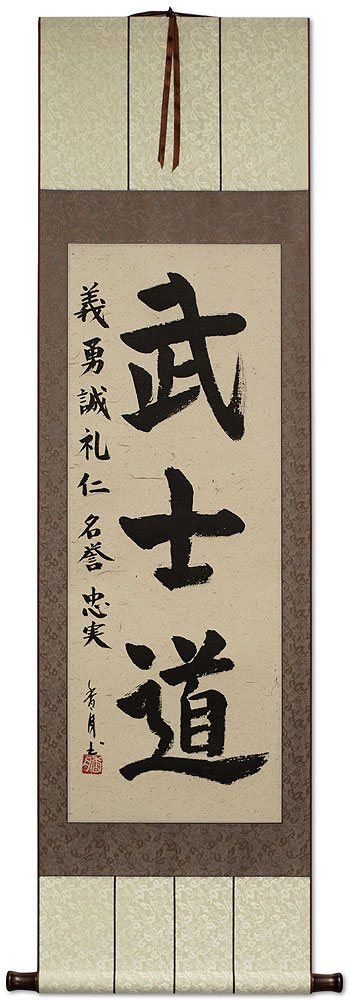 武士道
義勇誠礼仁名誉忠実
香月書